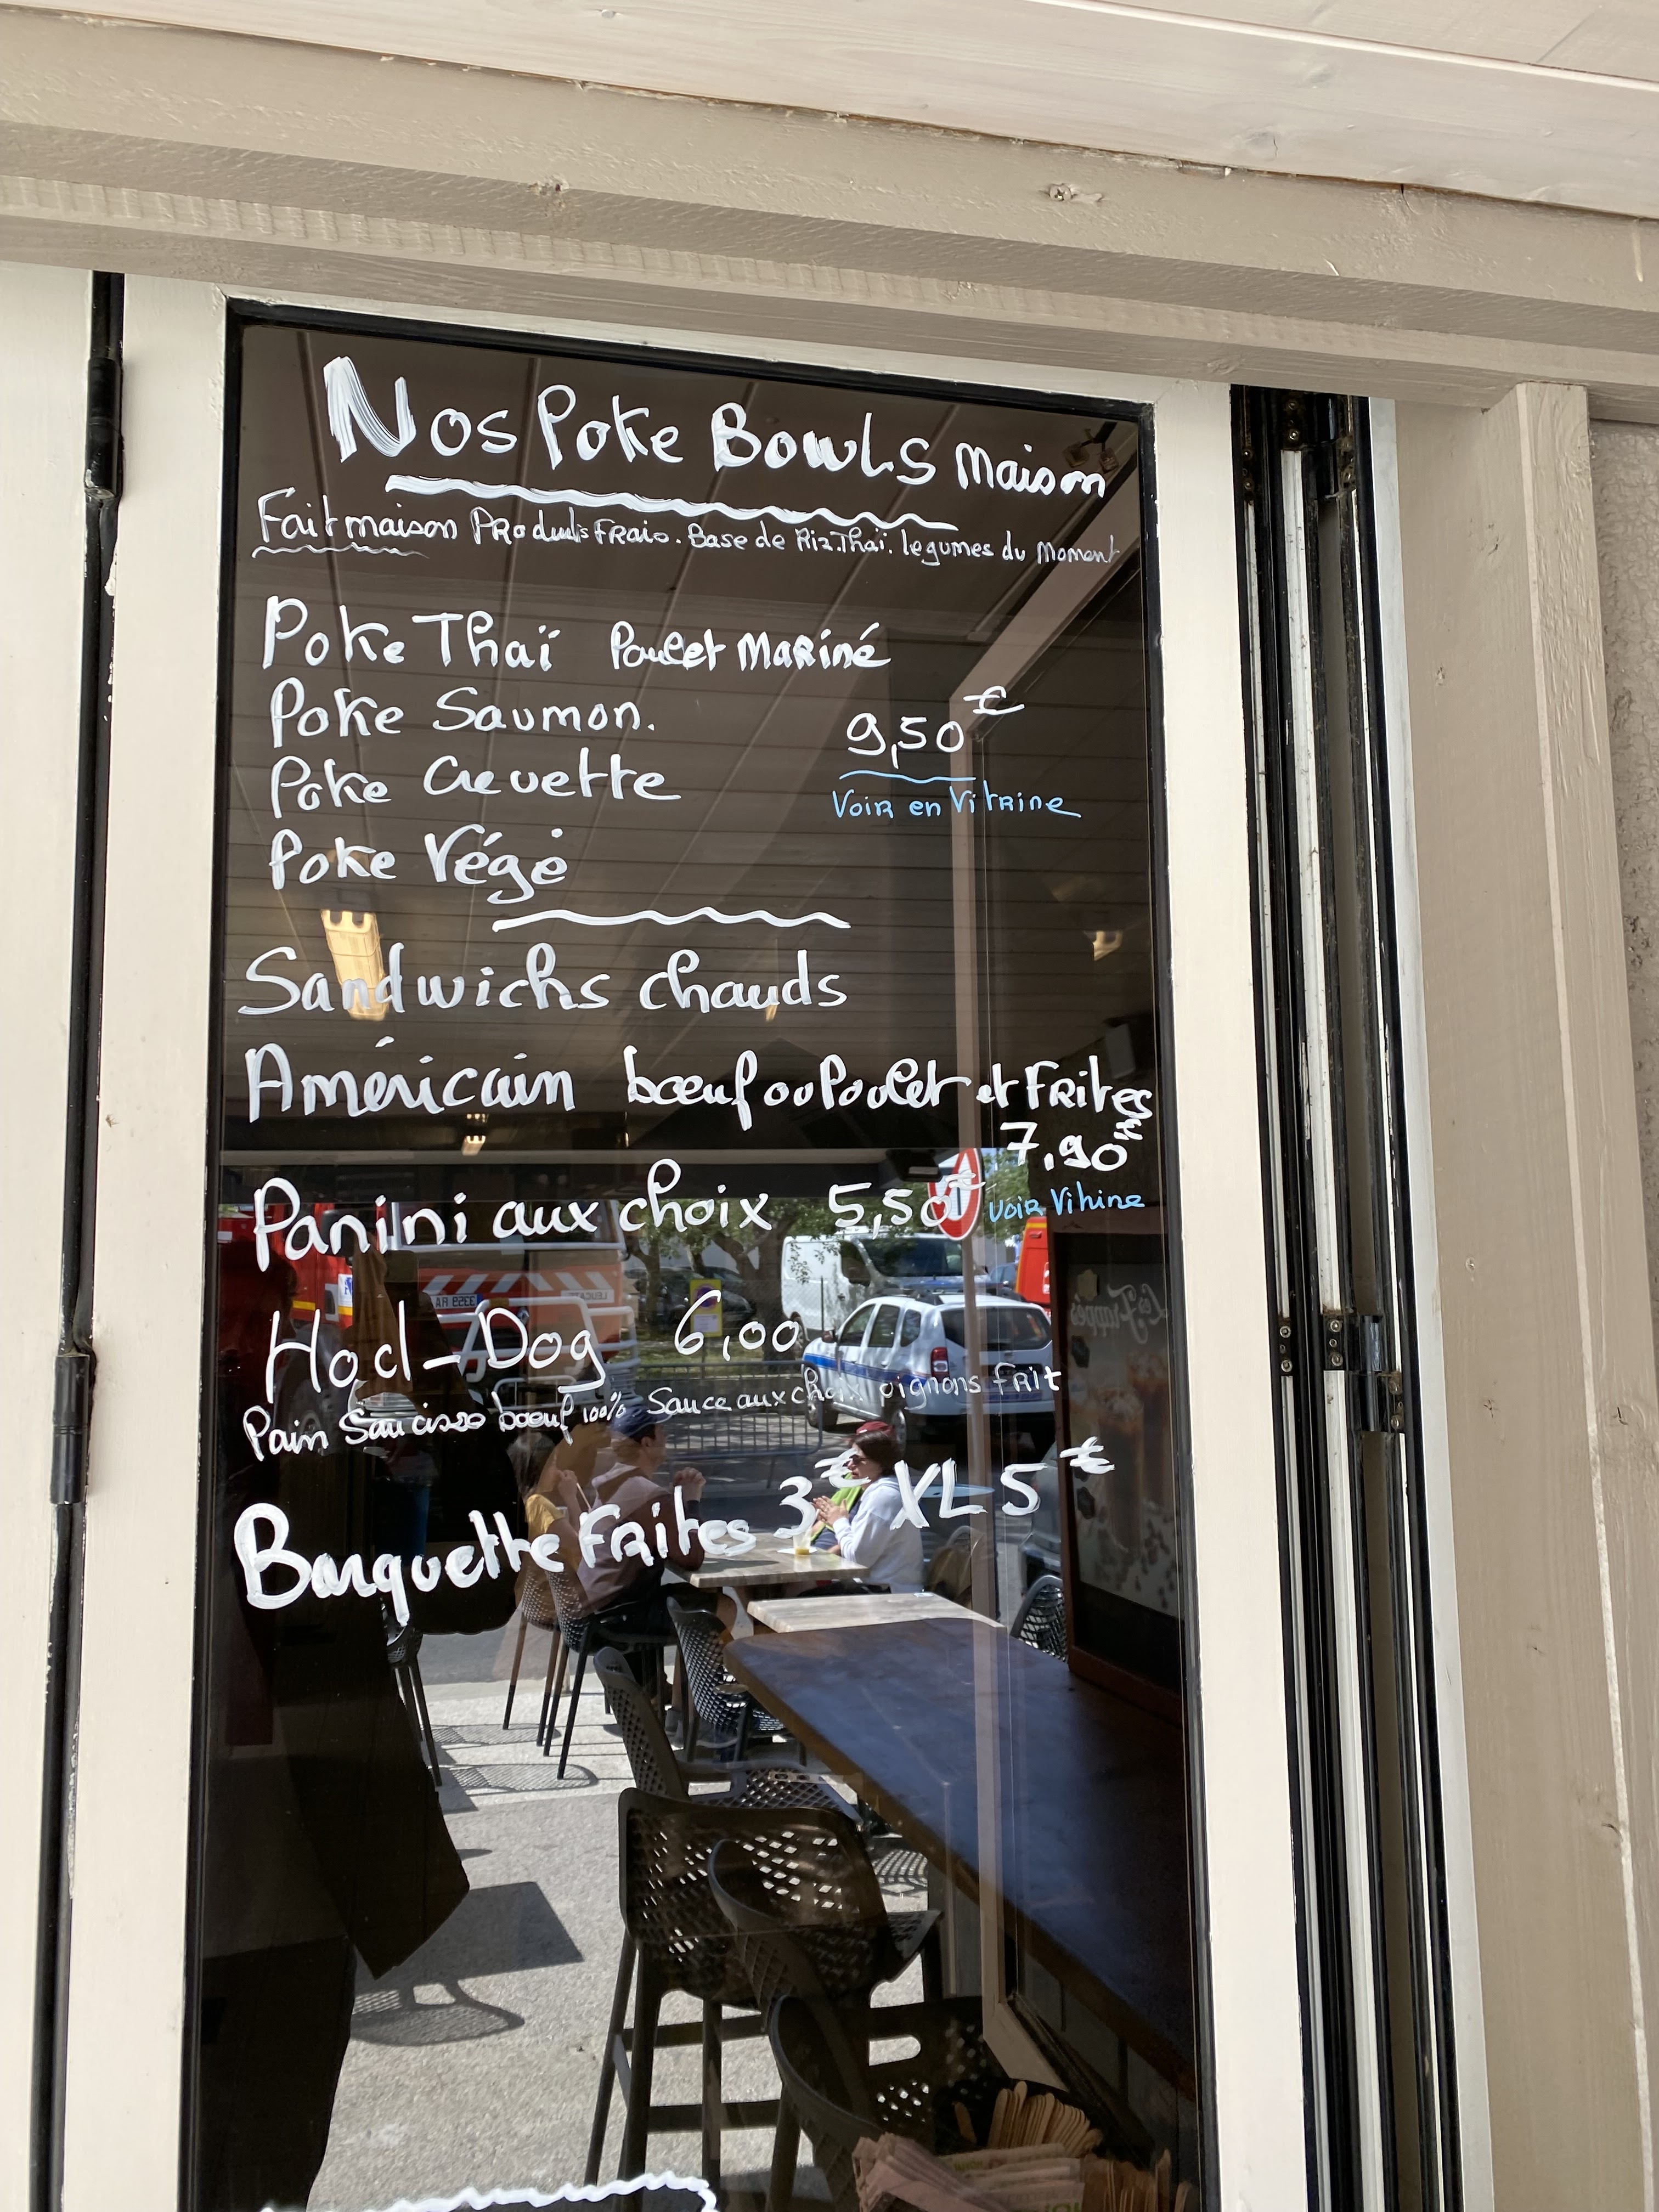 Nos Poke Bowls maison
Fait maison Produits Frais. Base de Riz Thaï. legumes du Moment
Poke Thaï Poulet Mariné
Poke Saumon.
9,50€
Poke Crevette
Voir en Vitrine
Poke Végé
Sandwichs chauds
Américain bœuf ou Poulet et Frites
7,90€
Panini aux choix 5,50€ Voir Vitrine
Hod-Dog 6,00
Pain Saucisse bœuf 100% Sauce aux choix oignons frit
Barquette Frites 3€ XL 5€